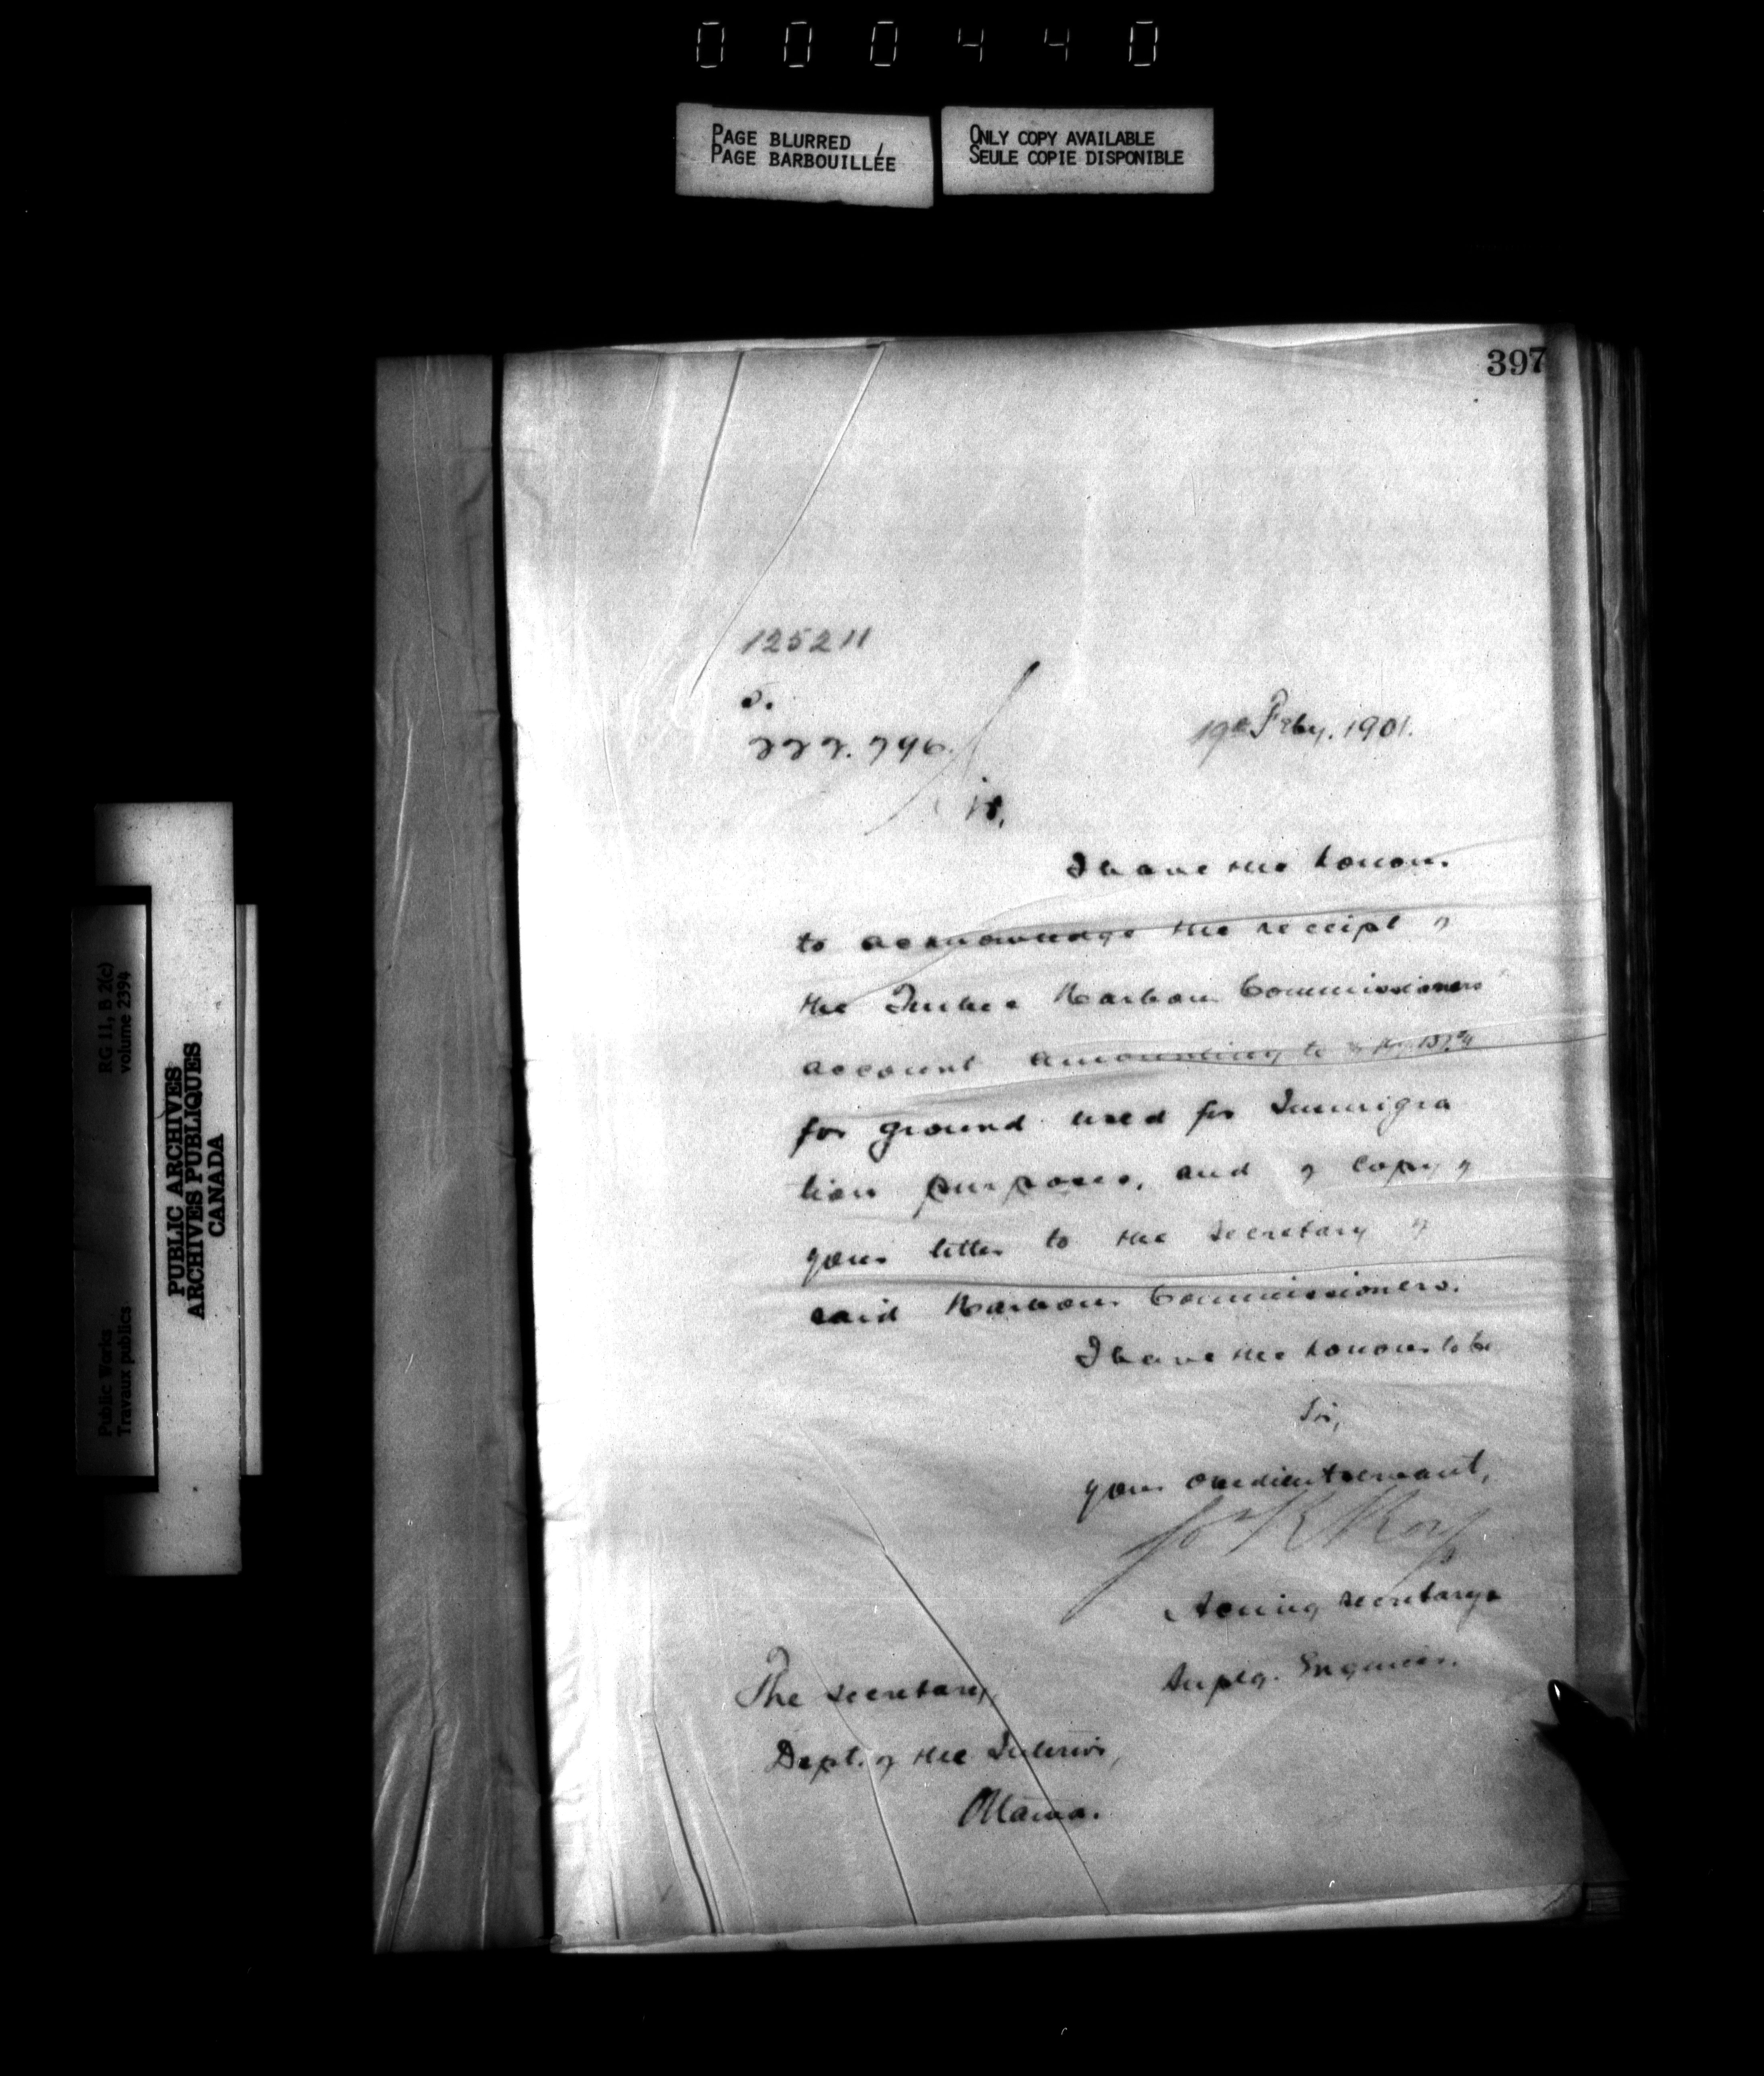 000440
PAGE BLURRED
PAGE BARBOUILLÉE
ONLY COPY AVAILABLE
SEULE COPIE DISPONIBLE
397
125211
222.796.
19th Feby. 1901.
I have the honour
to acknowledge the receipt of
the Quebec Harbour Commissioners
account amounting to
for ground used for Immigra
tion purposes, and of copy of
your letter to the secretary of
said Harbour Commissioners.
I have the honour to be
Sir,
your obedient servant,
Jos R Roy
Acting secretary &
Suplg. Engineer.
The secretary,
Dept. of the Interior,
Ottawa.
RG 11, B 2(c)
volume 2394
Public Works
Travaux publics
PUBLIC ARCHIVES
ARCHIVES PUBLIQUES
CANADA